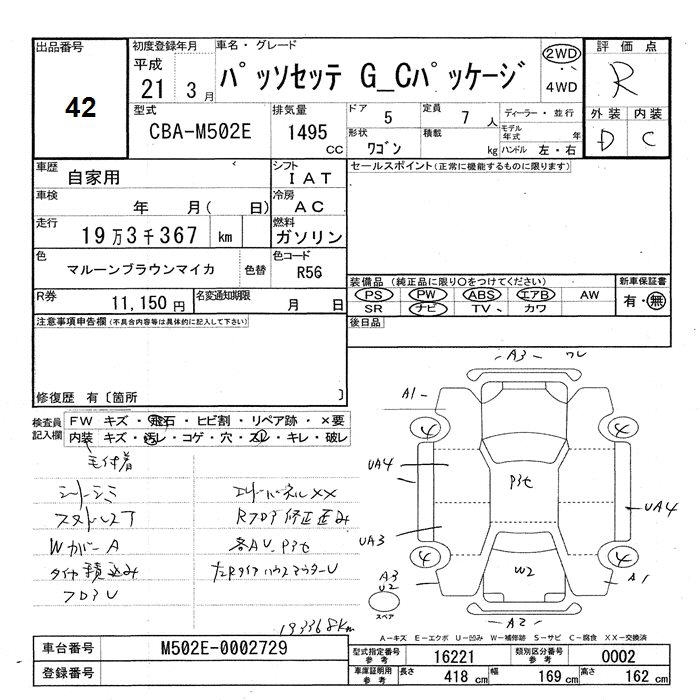 出品番号
42
初度登録年月
平成
21 3月
車名・グレード
パッソセッテ G_Cパッケージ
2WD
4WD
評価点
R
型式
CBA-M502E
排気量
1495 cc
ドア 5
定員 7 人
ディーラー・並行
形状 ワゴン
積載 kg
モデル年式 年
ハンドル 左・右
外装 内装
D C
車歴
自家用
シフト
IAT
セールスポイント(正常に機能するものに限ります)
車検
年 月( 日)
冷房
AC
走行
19万3千367 km
燃料
ガソリン
色
マルーンブラウンマイカ
色替
色コード
R56
装備品(純正品に限り○をつけてください)
新車保証書
PS PW ABS エアB AW
有・無
SR ナビ TV、 カワ
R券
11,150円
名変通知期限
月 日
後日品
注意事項申告欄(不具合内容等は具体的に記入して下さい)
修復歴 有〔箇所 〕
検査員記入欄
FW キズ・飛石・ヒビ割・リペア跡・×要
内装 キズ・汚レ・コゲ・穴・スレ・キレ・破レ
毛付着
シートシミ
エンドパネルXX
Wカバー A
タイヤ積込み
フロアU
193368km
A3
A1
4
4
UA4
P3t
UA4
UA3
4
4
A3
U2
W2
A1
スペア
A2
A-キズ E-エクボ U-凹み W-補修跡 S-サビ C-腐食 XX-交換済
車台番号
M502E-0002729
型式指定番号 参考
16221
類別区分番号 参考
0002
登録番号
車庫証明用 参考
長さ 418 cm
幅 169 cm
高さ 162 cm